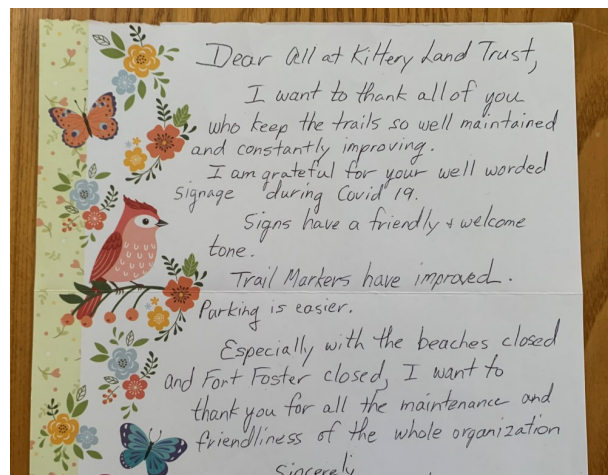 Dear All at Kittery Land Trust,
I want to thank all of you
who keep the trails so well maintained
and constantly improving.
I am grateful for your well worded
signage during Covid 19.
Signs have a friendly + welcome
tone.
Trail Markers have improved.
Parking is easier.
Especially with the beaches closed
and Fort Foster closed, I want to
thank you for all the maintenance and
friendliness of the whole organization
Sincerely